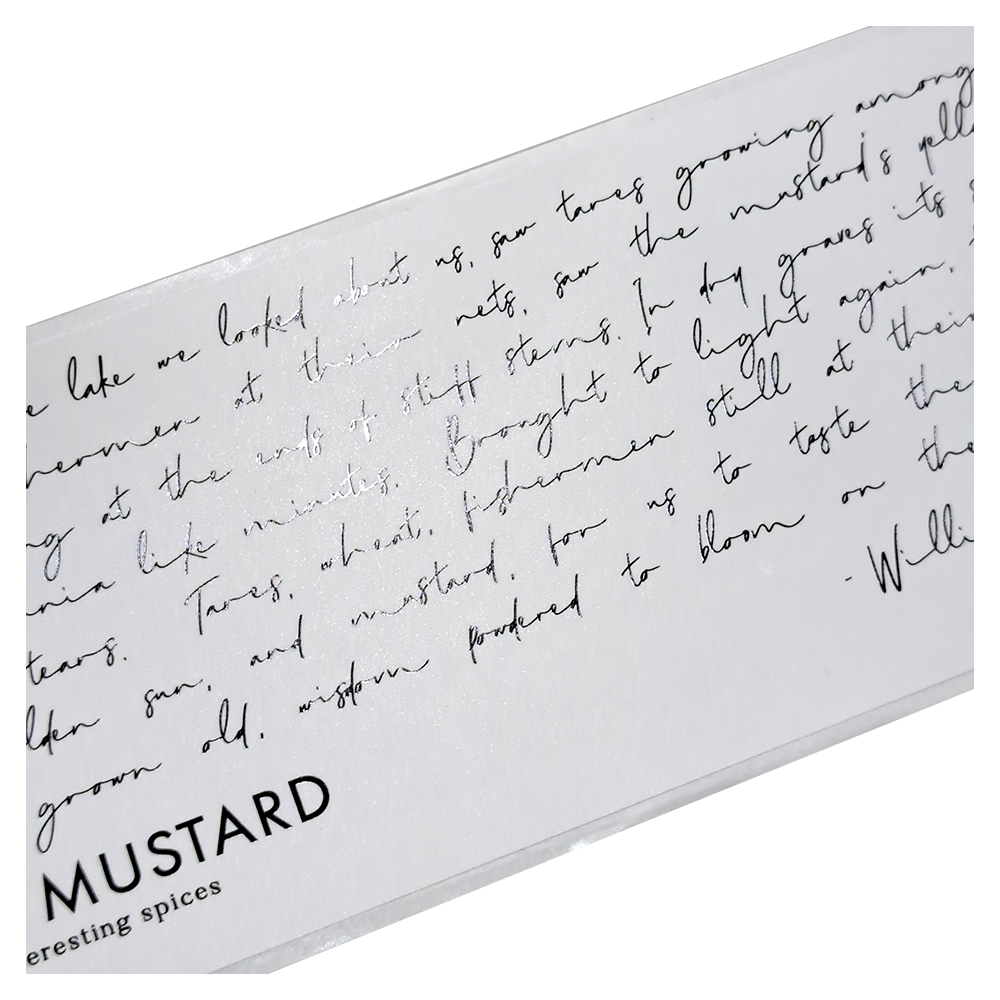 e lake we looked about us, saw tares growing among
hermen at their nets, saw the mustard's yello
ng at the ends of stiff stems. In dry graves its s
nia like minutes. Brought to light again,
tears. Tares, wheat, fishermen still at their
lden sun, and mustard, for us to taste the
grown old, wisdom powdered to bloom on the
- Willi
MUSTARD
eresting spices